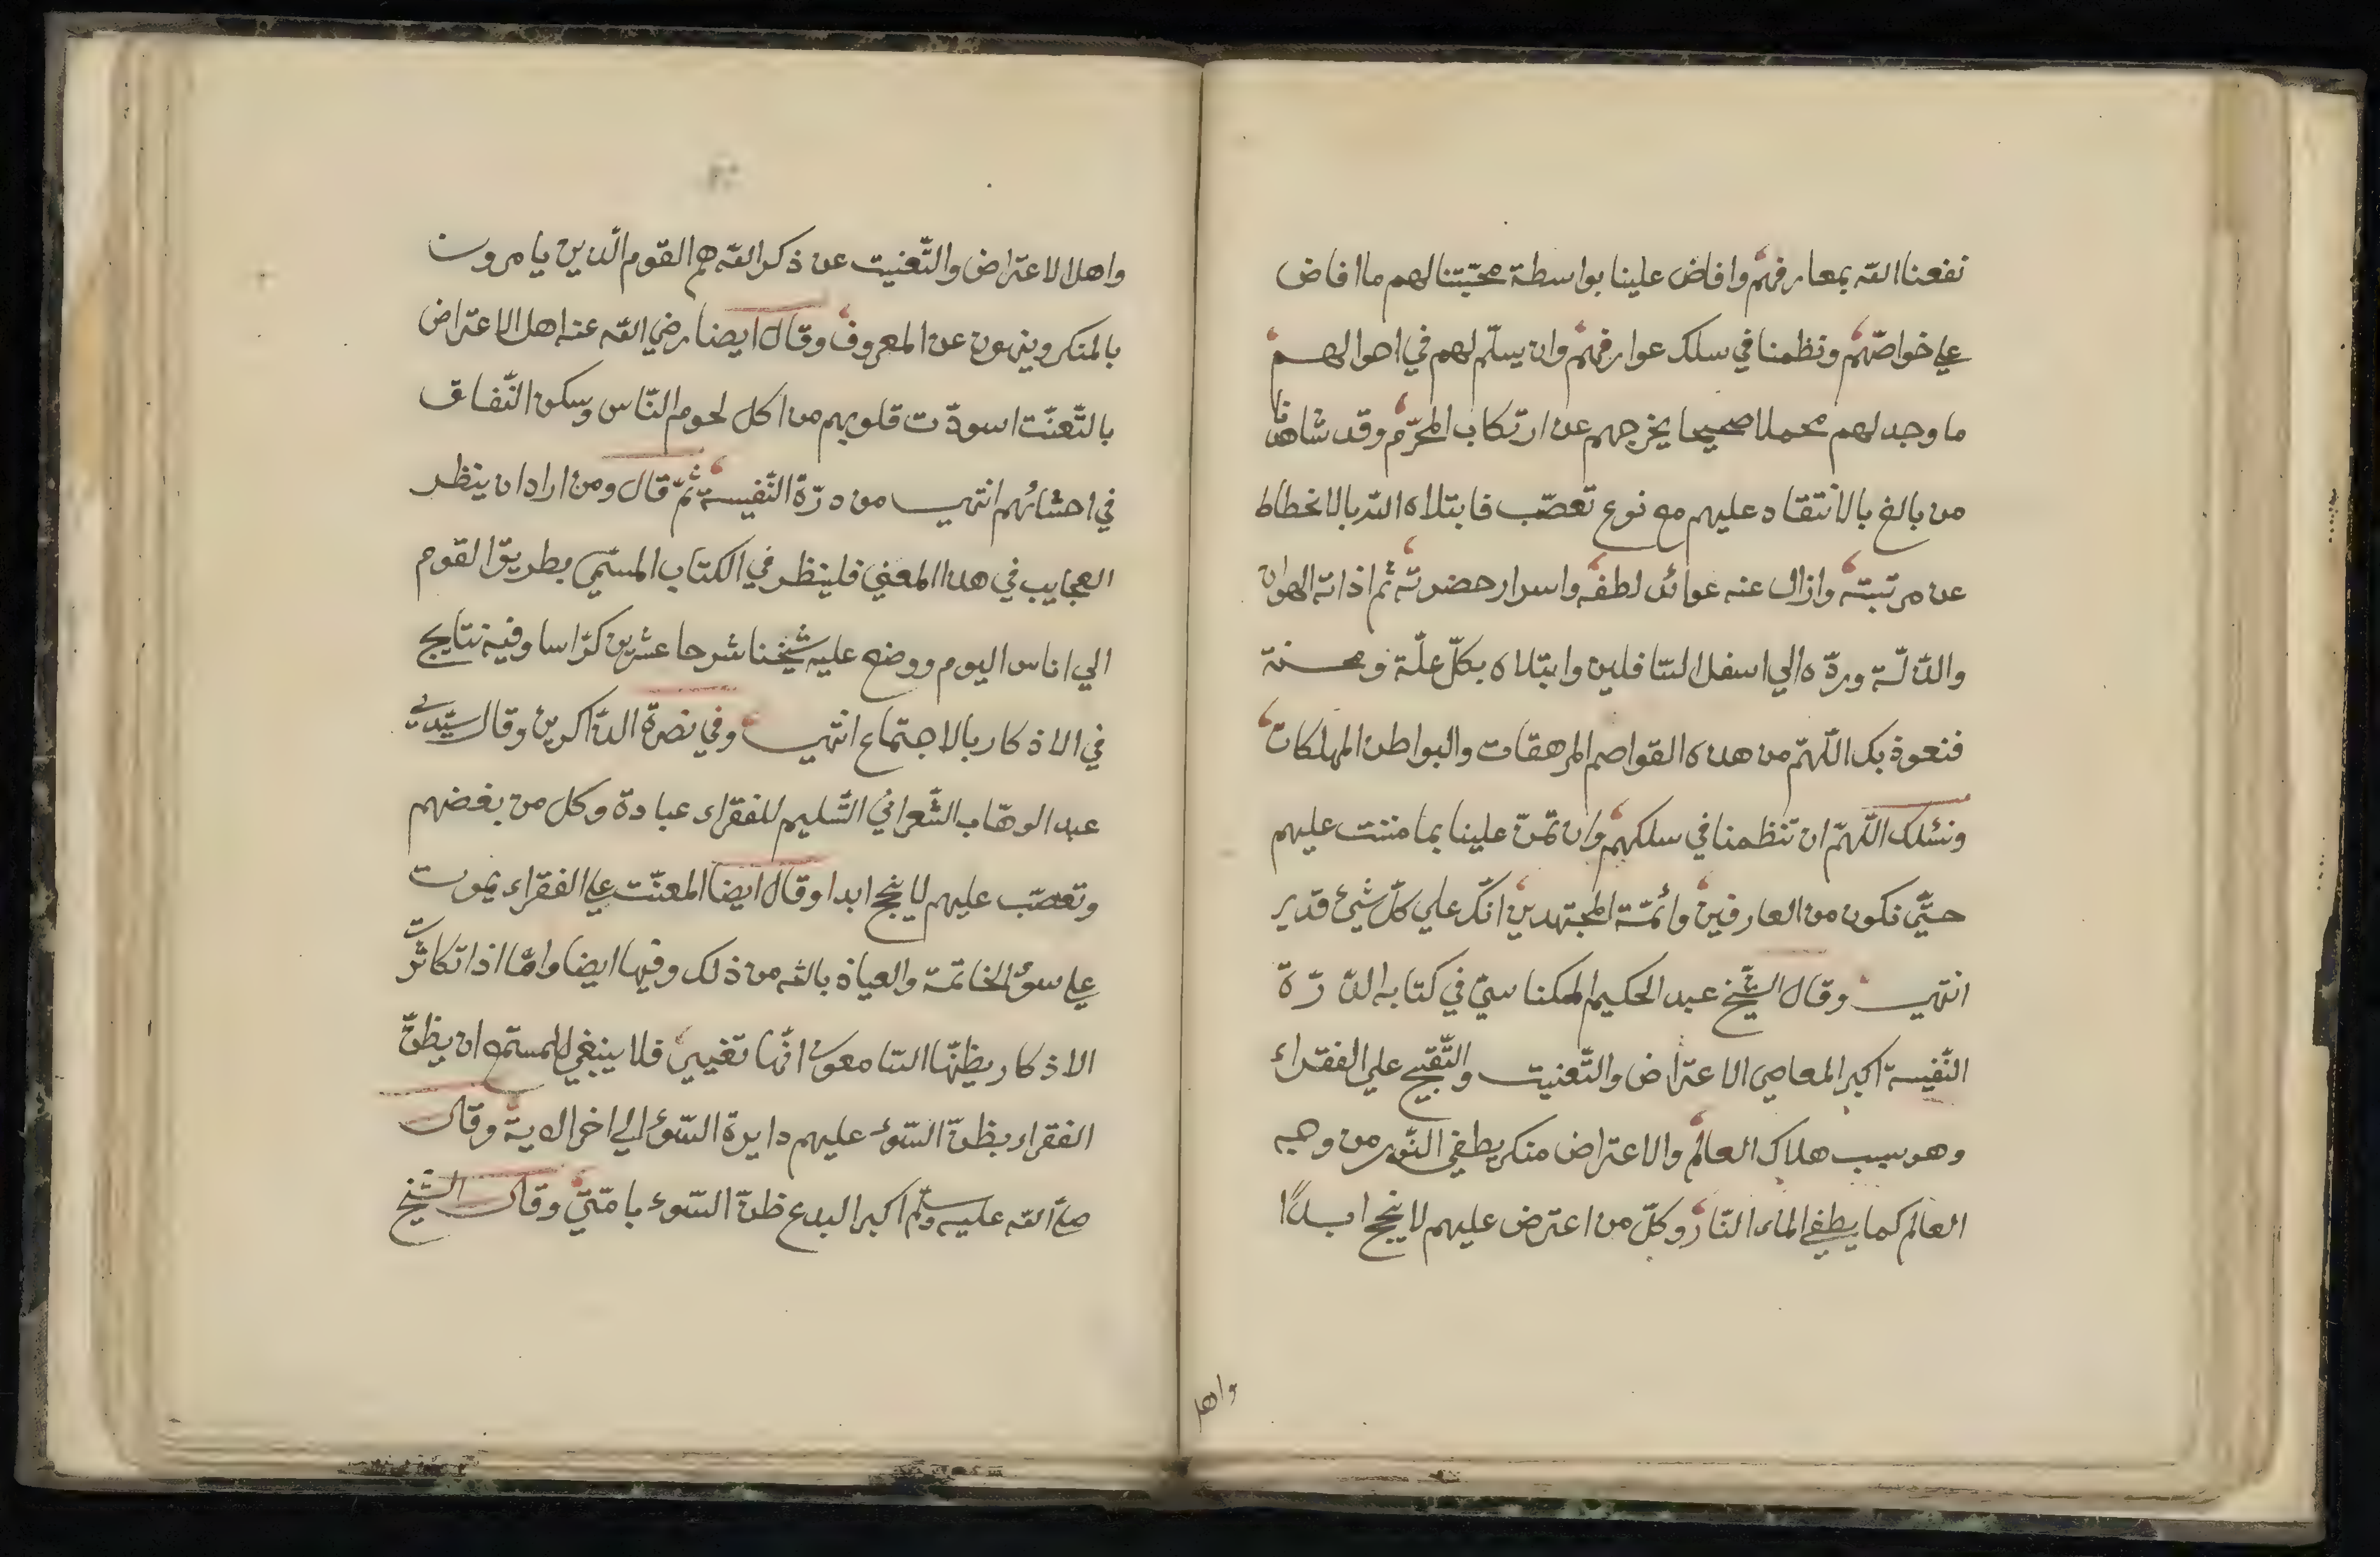 نفعنا الله بمعارفهم وافاض علينا بواسطة محبّتنا لهم ما افاض
علي خواصّهم ونظمنا في سلك عوارفهم وان يسلّم لهم في احوالهم
ما وجد لهم محملا صحيحا يخرجهم عن ارتكاب المحرّم وقد شاهدنا
من بالغ بالانتقاد عليهم مع نوع تعصّب فابتلاه الله بالانحطاط
عن مرتبته وازال عنه عوائد لطفه واسرار حضرته ثم اذاقه الهوان
والذلّة وردّه الي اسفل السّافلين وابتلاه بكلّ علّة ومحنة
فنعوذ بك اللّهمّ من هذه القواصم المرهقات والبواطن المهلكات
ونسئلك اللّهمّ ان تنظمنا في سلكهم وان تمنّ علينا بما مننت عليهم
حتّي نكون من العارفين وأئمّة المجتهدين انّك علي كلّ شيئ قدير
انتهي وقال الشّيخ عبد الحكيم المكناسيّ في كتابه الدّرّة
النّفيسة اكبر المعاصي الاعتراض والتّعنيت والتّقبيح علي الفقراء
وهو سبب هلاك العالم والاعتراض منكر يطفي النّور من وجه
العالم كما يطفي الماء النّار وكلّ من اعترض عليهم لا ينجح ابدًا
واهل
واهل الاعتراض والتّعنيت عن ذكر الله هم القوم الّذين يامرون
بالمنكر وينهون عن المعروف وقال ايضا رضي الله عنه اهل الاعتراض
بالتّعنّت اسودّت قلوبهم من اكل لحوم النّاس وسكن النّفاق
في احشائهم انتهي من درّة النّفيسة ثمّ قال ومن اراد ان ينظر
العجايب في هذا المعني فلينظر في الكتاب المسمّي بطريق القوم
الي اناس اليوم ووضع عليه شيخنا شرحا عشرين كرّاسا وفيه نتايج
في الاذكار بالاجتماع انتهي وفي نصرة الذّاكرين وقال سيّدي
عبد الوهّاب الشّعراني التّسليم للفقراء عبادة وكل من بغضهم
وتعصّب عليهم لا ينجح ابدا وقال ايضا المعنّت علي الفقراء يموت
علي سوء الخاتمة والعياذ بالله من ذلك وفيها ايضا وامّا اذا تكاثرت
الاذكار يظنّها السّامعون انّها تغيير فلا ينبغي للمستمع ان يظنّ
الفقراء بظنّ السّوء عليهم دايرة السّوء الي اخر الاية وقال
صلّي الله عليه وسلّم اكبر البدع ظنّ السّوء بامّتي وقال الشيخ